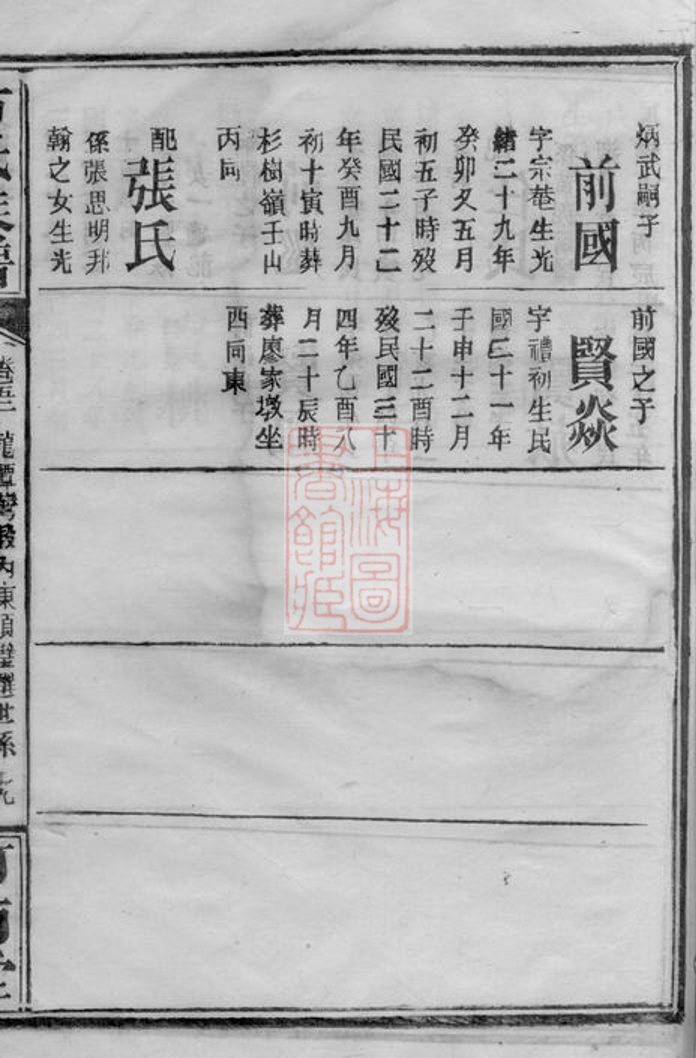 炳武嗣子
前國
字宗菴生光
緒二十九年
癸卯又五月
初五子時歿
民國二十二
年癸酉九月
初十寅時葬
杉樹嶺壬山
丙向
配張氏
係張思明邦
翰之女生光
前國之子
賢焱
字禮初生民
國二十一年
壬申十二月
二十二酉時
歿民國三十
四年乙酉八
月二十辰時
葬廖家墩坐
西向東
上海圖書館藏